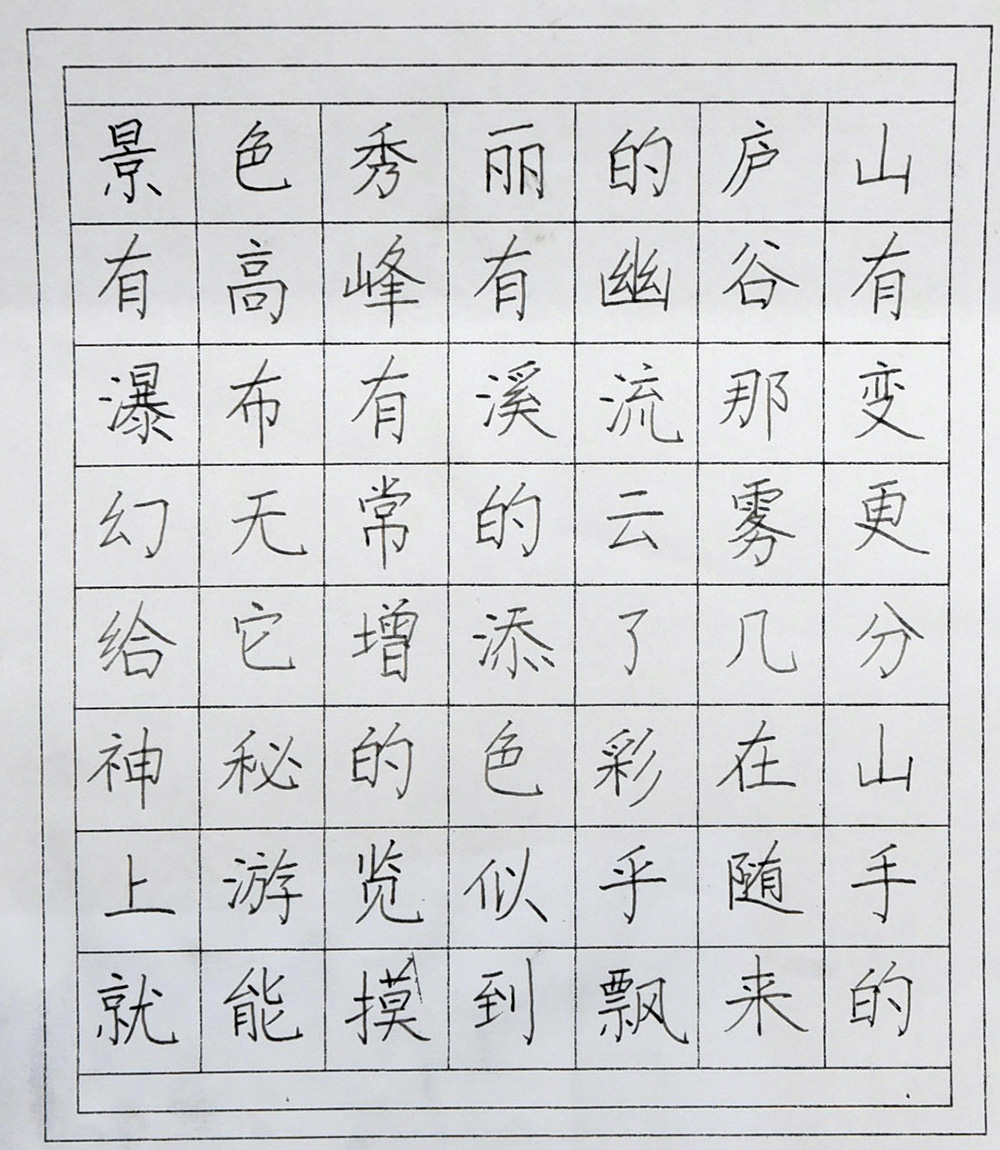 景色秀丽的庐山
有高峰有幽谷有
瀑布有溪流那变
幻无常的云雾更
给它增添了几分
神秘的色彩在山
上游览似乎随手
就能摸到飘来的